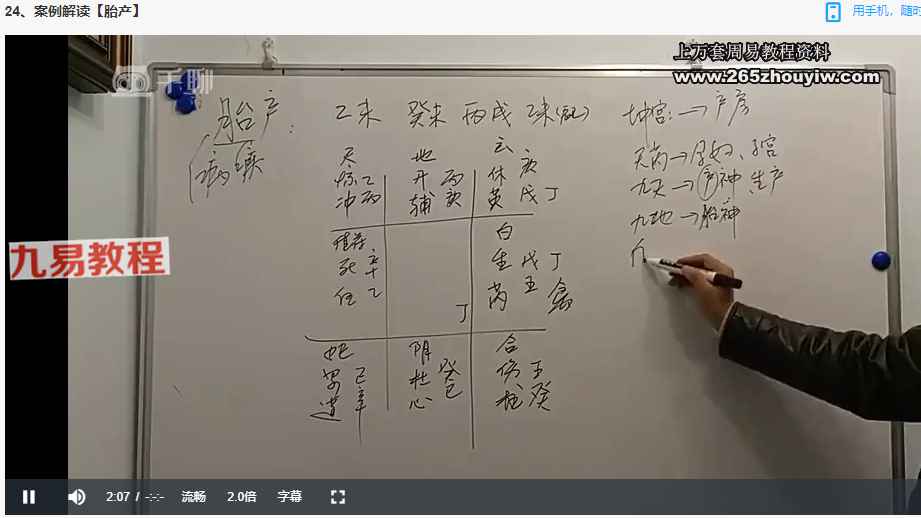 24、案例解读【胎产】
用手机，随时
上万套周易教程资料
www.265zhouyiw.com
千聊
九易教程
胎产：
病
乙未 癸未 丙戌 乙未
坤宫：→产房
天芮→孕妇、子宫
九天→产神 生产
九地→胎神
天
惊 乙
冲 丙
地
开 丙
辅 庚
云
休 庚
英 戊 丁
死
任 乙
丁
白
生 戊 丁
芮 壬 禽
蛇
景 己
辛
阴
杜 癸
心 己
合
伤 壬
柱 癸
2:07 / -:-:-
流畅
2.0倍
字幕